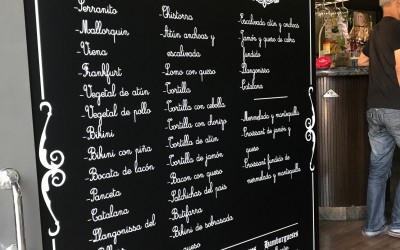 -Serranito
-Mallorquin
-Viena
-Frankfurt
-Vegetal de atún
-Vegetal de pollo
-Bikini
-Bikini con piña
-Bocata de lacón
-Panceta
-Catalana
-Llangonissa del
-Chistorra
-Atún anchoas y
escalivada
-Lomo con queso
-Tortilla
-Tortilla con cebolla
-Tortilla con chorizo
-Tortilla de atún
-Tortilla de jamón
-Bacon con queso
-Salchichas del país
-Butifarra
-Bikini de sobrasada
queso
-Escalivada atún y anchoas
-Jamón y queso de cabra
fundido
-Llangonissa
-Catalana
-Mermelada y mantequilla
-Croissant de jamón y
queso
-Croissant fundido de
mermelada y mantequilla
Hamburgueses